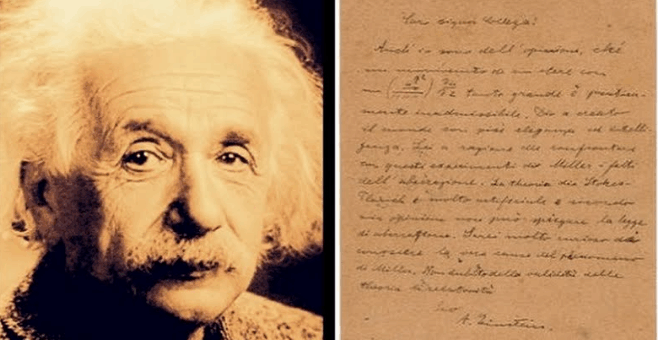 Caro signor Collega!
Anch'io sono dell'opinione, ché
un movimento
tanto grande è
mente inadmissibile. Dio a creato
il mondo con più eleganza ed intelli-
genza. Lei a ragione confrontare
con questi esperimenti di Miller i fatti
dell'aberrazione. La theoria di Stokes-
Planck è molto artificiale e secondo
mia opinione non può spiegare la legge
di aberrazione. Sarei molto curioso di
conoscere la vera causa del phenomeno
di Miller. Non dubito della validità della
theoria di relatività
Suo
A. Einstein.